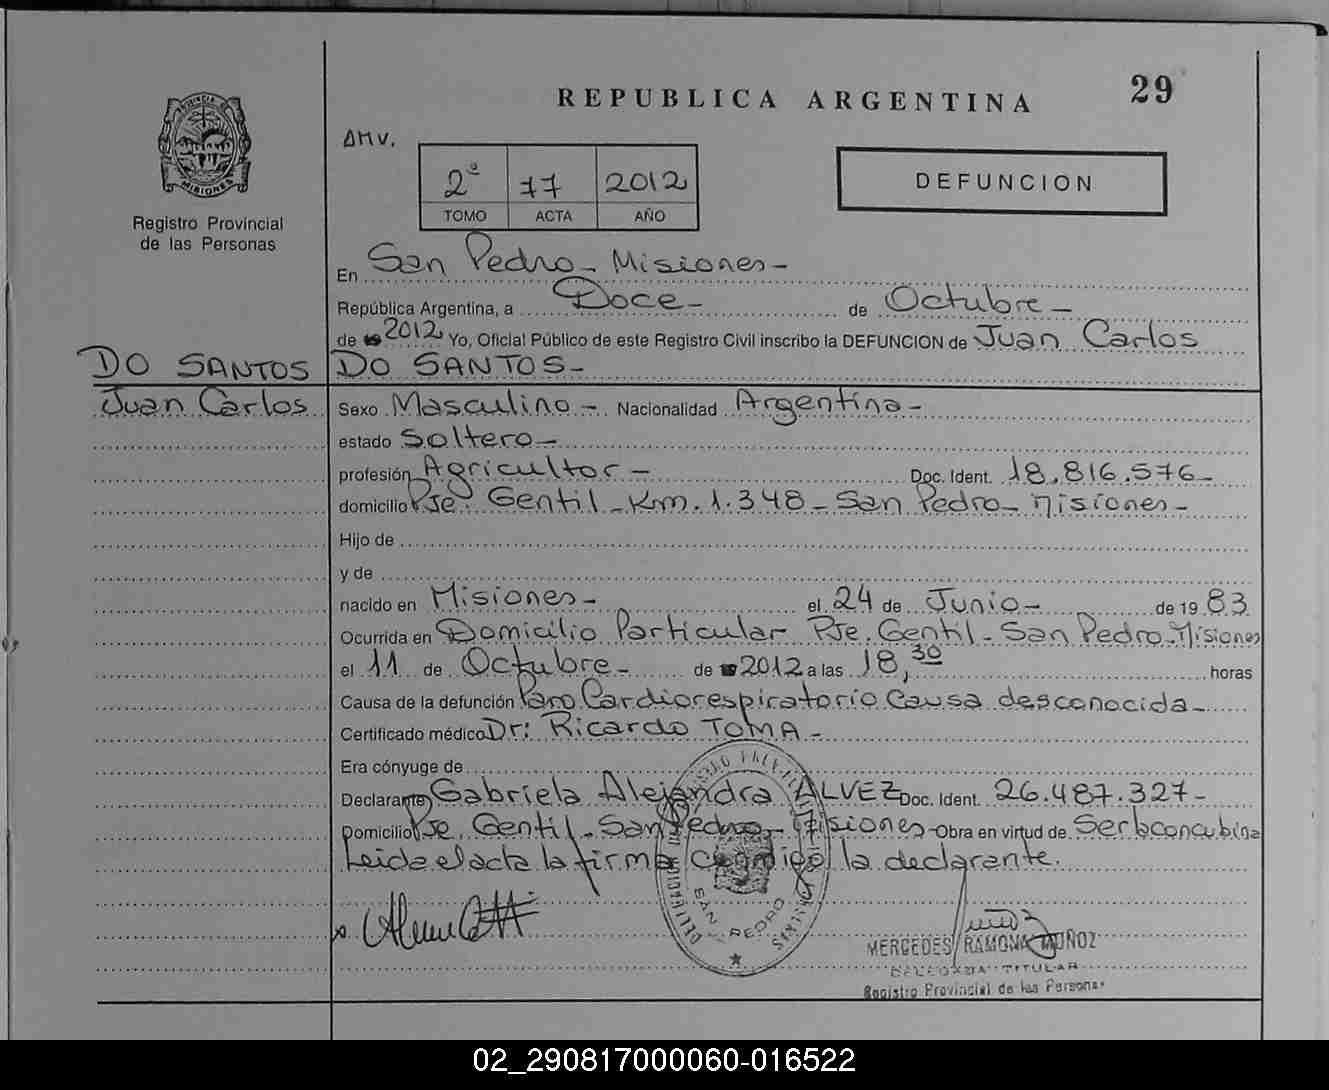 REPUBLICA ARGENTINA
29
PROVINCIA DE
MISIONES
Registro Provincial
de las Personas
AMV.
2ª 77 2012
TOMO ACTA AÑO
DEFUNCION
En San Pedro - Misiones -
República Argentina, a Doce - de Octubre -
de 2012 Yo, Oficial Público de este Registro Civil inscribo la DEFUNCION de Juan Carlos
DO SANTOS DO SANTOS -
Juan Carlos Sexo Masculino - Nacionalidad Argentina -
estado Soltero -
profesión Agricultor - Doc. Ident. 18.816.576 -
domicilio Pje. Gentil - Km. 1.348 - San Pedro - Misiones -
Hijo de
y de
nacido en Misiones - el 24 de Junio - de 19 83
Ocurrida en Domicilio Particular Pje. Gentil - San Pedro - Misiones
el 11 de Octubre - de 2012 a las 18,30 horas
Causa de la defunción Paro Cardiorespiratorio Causa desconocida -
Certificado médico Dr: Ricardo TOMA -
Era cónyuge de
Declarante Gabriela Alejandra ALVEZ Doc. Ident. 26.487.327 -
Domicilio Pje Gentil - San Pedro - Misiones - Obra en virtud de Ser la concubina
Leida el acta la firma conmigo la declarante.
SAN PEDRO
MERCEDES RAMONA MUÑOZ
DELEGADA TITULAR
Registro Provincial de las Personas
02_290817000060-016522